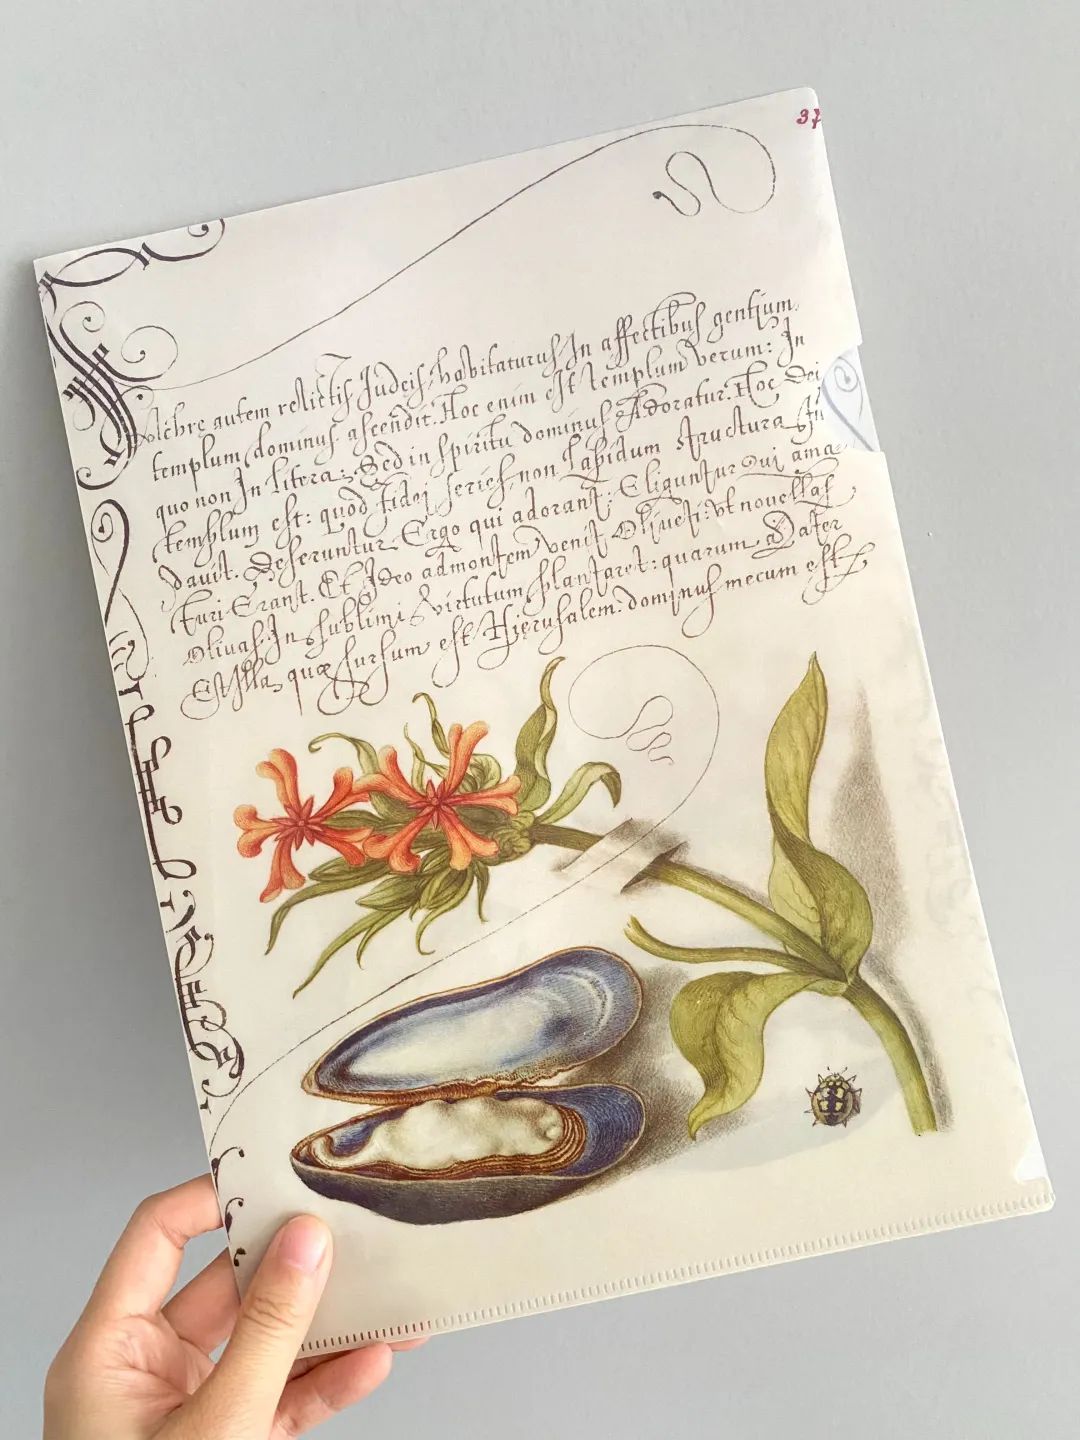 37
autem relictis Judeis, habitaturus In affectibus gentium
templum dominus ascendit. Hoc enim est templum verum: In
quo non In litera: Sed in spiritu dominus Adoratur. Hoc Dei
templum est: quod fidei series, non lapidum structura
deseruntur Ergo qui adorant: Eliguntur Qui ama
turi Erant. Et Ideo admontem venit Oliueti: vt nouellas
Oliuas In sublimi virtutum plantaret: quarum Pater
Est Illa, quæ sursum est Hierusalem: dominus mecum est